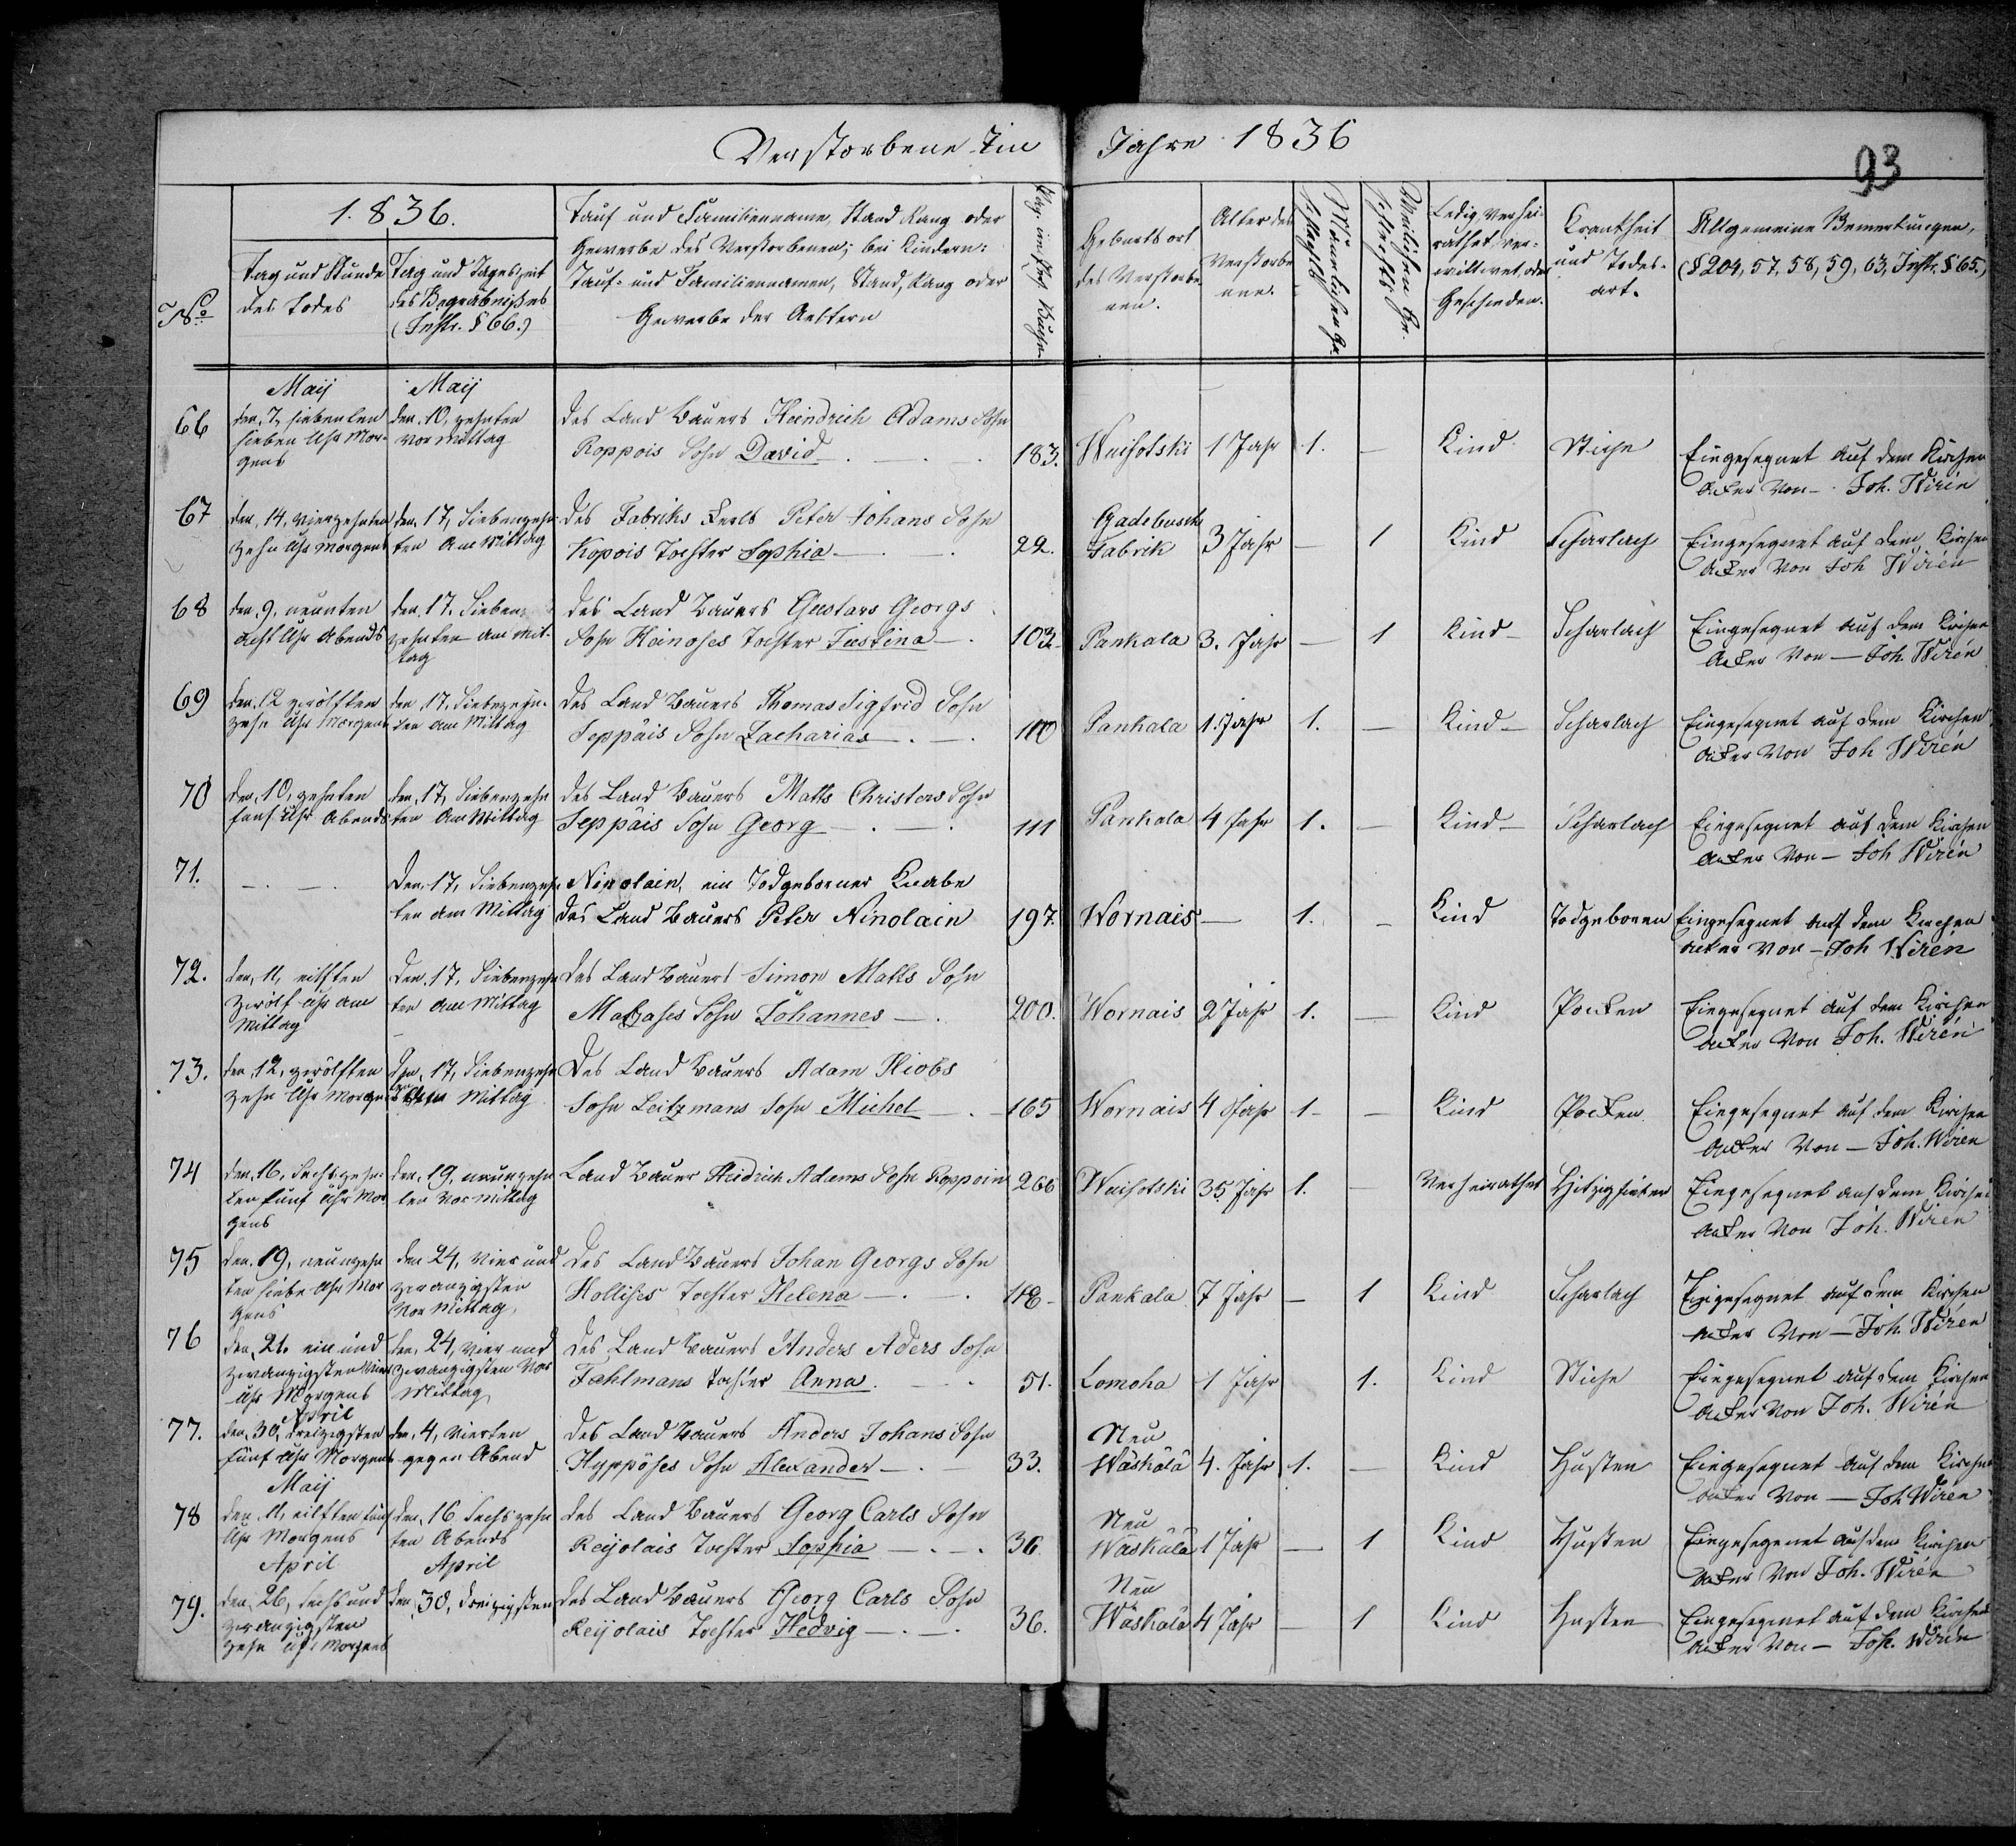 Verstorbene im Jahre 1836
93
No
1836.
Tag und Stunde des Todes
Tag und Tageszeit des Begräbnißes (Instr. § 66.)
Tauf und Familienname, Stand Rang oder
Gewerbe des Verstorbenen; bei Kindern:
Tauf- und Familiennamen, Stand, Rang oder
Gewerbe der Aeltern
Geburtsort des Verstorbenen.
Alter des Verstorbenen.
Männlichen Geschlechts
Weiblichen Geschlechts
Ledig, verheirathet, verwittwet, oder Geschieden.
Krankheit und Todesart.
Allgemeine Bemerkungen,
(§ 204, 57, 58, 59, 63, Instr. § 65.)
Maij Maij
66 den 7, siebenten sieben Uhr Morgens den 10, zehnten vor mittag des Land Bauers Heindrich Adams Sohn
Roppois Sohn David 183. 1 Jahr 1. — Kind Stiche Eingesegnet auf dem Kirchen
Acker von — Joh. Wirén
67 den 14, vierzehnten zehn Uhr Morgens den 17, Siebenzehnten am Mittag des Fabriks Kerls Peter Johans Sohn
Kopois Tochter Sophia 22. Gadebusch Fabrik 3 Jahr — 1 Kind Scharlach Eingesegnet auf dem Kirchen
Acker von Joh Wirén
68 den 9, neunten acht Uhr Abends den 17. Siebenzehnten am Mittag des Land Bauers Gustavs Georgs
Sohn Heinoses Tochter Justina 103 Pankala 3. Jahr — 1 Kind Scharlach Eingesegnet auf dem Kirchen
Acker von — Joh Wirén
69 den 12 zwölften zehn Uhr Morgens den 17. Siebenzehnten am Mittag des Land Bauers Thomas Sigfrid Sohn
Seppäis Sohn Zacharias 110 Pankala 1. Jahr 1. — Kind Scharlach Eingesegnet auf dem Kirchen
Acker von Joh Wirén
70 den 10, zehnten fünf Uhr Abends den 17, Siebenzehnten am Mittag des Land Bauers Matts Christers Sohn
Seppäis Sohn Georg 111 Pankala 4 Jahr 1. — Kind Scharlach Eingesegnet auf dem Kirchen
Acker von — Joh Wirén
71. den 17, Siebenzehnten am Mittag Ninolain, ein Todgeborner Knabe
des Land Bauers Peter Ninolain 197. Wornais — 1. — Kind Todgeboren Eingesegnet auf dem Kirchen
Acker von — Joh Wirén
72. den 11, eilften zwölf Uhr am Mittag den 17, Siebenzehnten am Mittag des Land Bauers Simon Matts Sohn
Sohn Johannes 200. Wornais 2 Jahr 1. — Kind Pocken Eingesegnet auf dem Kirchen
Acker von Joh. Wirén
73. den 12, zwölften zehn Uhr Morgens den 17, Siebenzehnten am Mittag des Land Bauers Adam Hiobs
Sohn Leitzmans Sohn Michel 165 Wornais 4 Jahr 1 — Kind Pocken Eingesegnet auf dem Kirchen
Acker von — Joh. Wiren
74 den 16, Sechszehnten fünf Uhr Morgens den 19, neunzehnten vor mittag Land Bauer Heidrich Adams Sohn Roppoin 266 35 Jahr 1. — Verheirathet Hitzigfieber Eingesegnet auf dem Kirchen
Acker von Joh. Wirén
75 den 19, neunzehnten siebe Uhr Morgens den 24, vier und zwanzigsten Vor Mittag des Land Bauers Johan Georgs Sohn
Hollises Tochter Helena Pankala 7 Jahr — 1 Kind Scharlach Eingesegnet auf dem Kirchen
Acker von — Joh. Wirén
76 den 21. ein und zwanzigsten vier Uhr Morgens den 24, vier und zwanzigsten Vor Mittag des Land Bauers Anders Aders Sohn
Fahlmans Tochter Anna 51. Lomoha 1 Jahr 1. Kind Stiche Eingesegnet auf dem Kirchen
Acker von Joh. Wirén
April
77. den 30, dreizigsten fünf Uhr Morgens den 4, vierten gegen Abend des Land Bauers Anders Johans Sohn
Hyppöses Sohn Alexander 33. Neu Wäskälä 4. Jahr 1. — Kind Husten Eingesegnet auf dem Kirchen
Acker von — Joh Wiren
Maij
78 den 11, eilften fünf Uhr Morgens den 16 Sechszehnten Abends des Land Bauers Georg Carls Sohn
Reijolais Tochter Sophia 36. Neu Wäskälä 1 Jahr — 1 Kind Husten Eingesegenet auf dem Kirchen
Acker von Joh. Wirén
April April
79. den 26, sechs und zwanzigsten zehn Uhr Morgens den 30, dreizigsten des Land Bauers Georg Carls Sohn
Reijolais Tochter Hedvig 36. Neu Wäskälä 4 Jahr — 1 Kind Husten Eingesegnet auf dem Kirchen
Acker von — Joh. Wirén